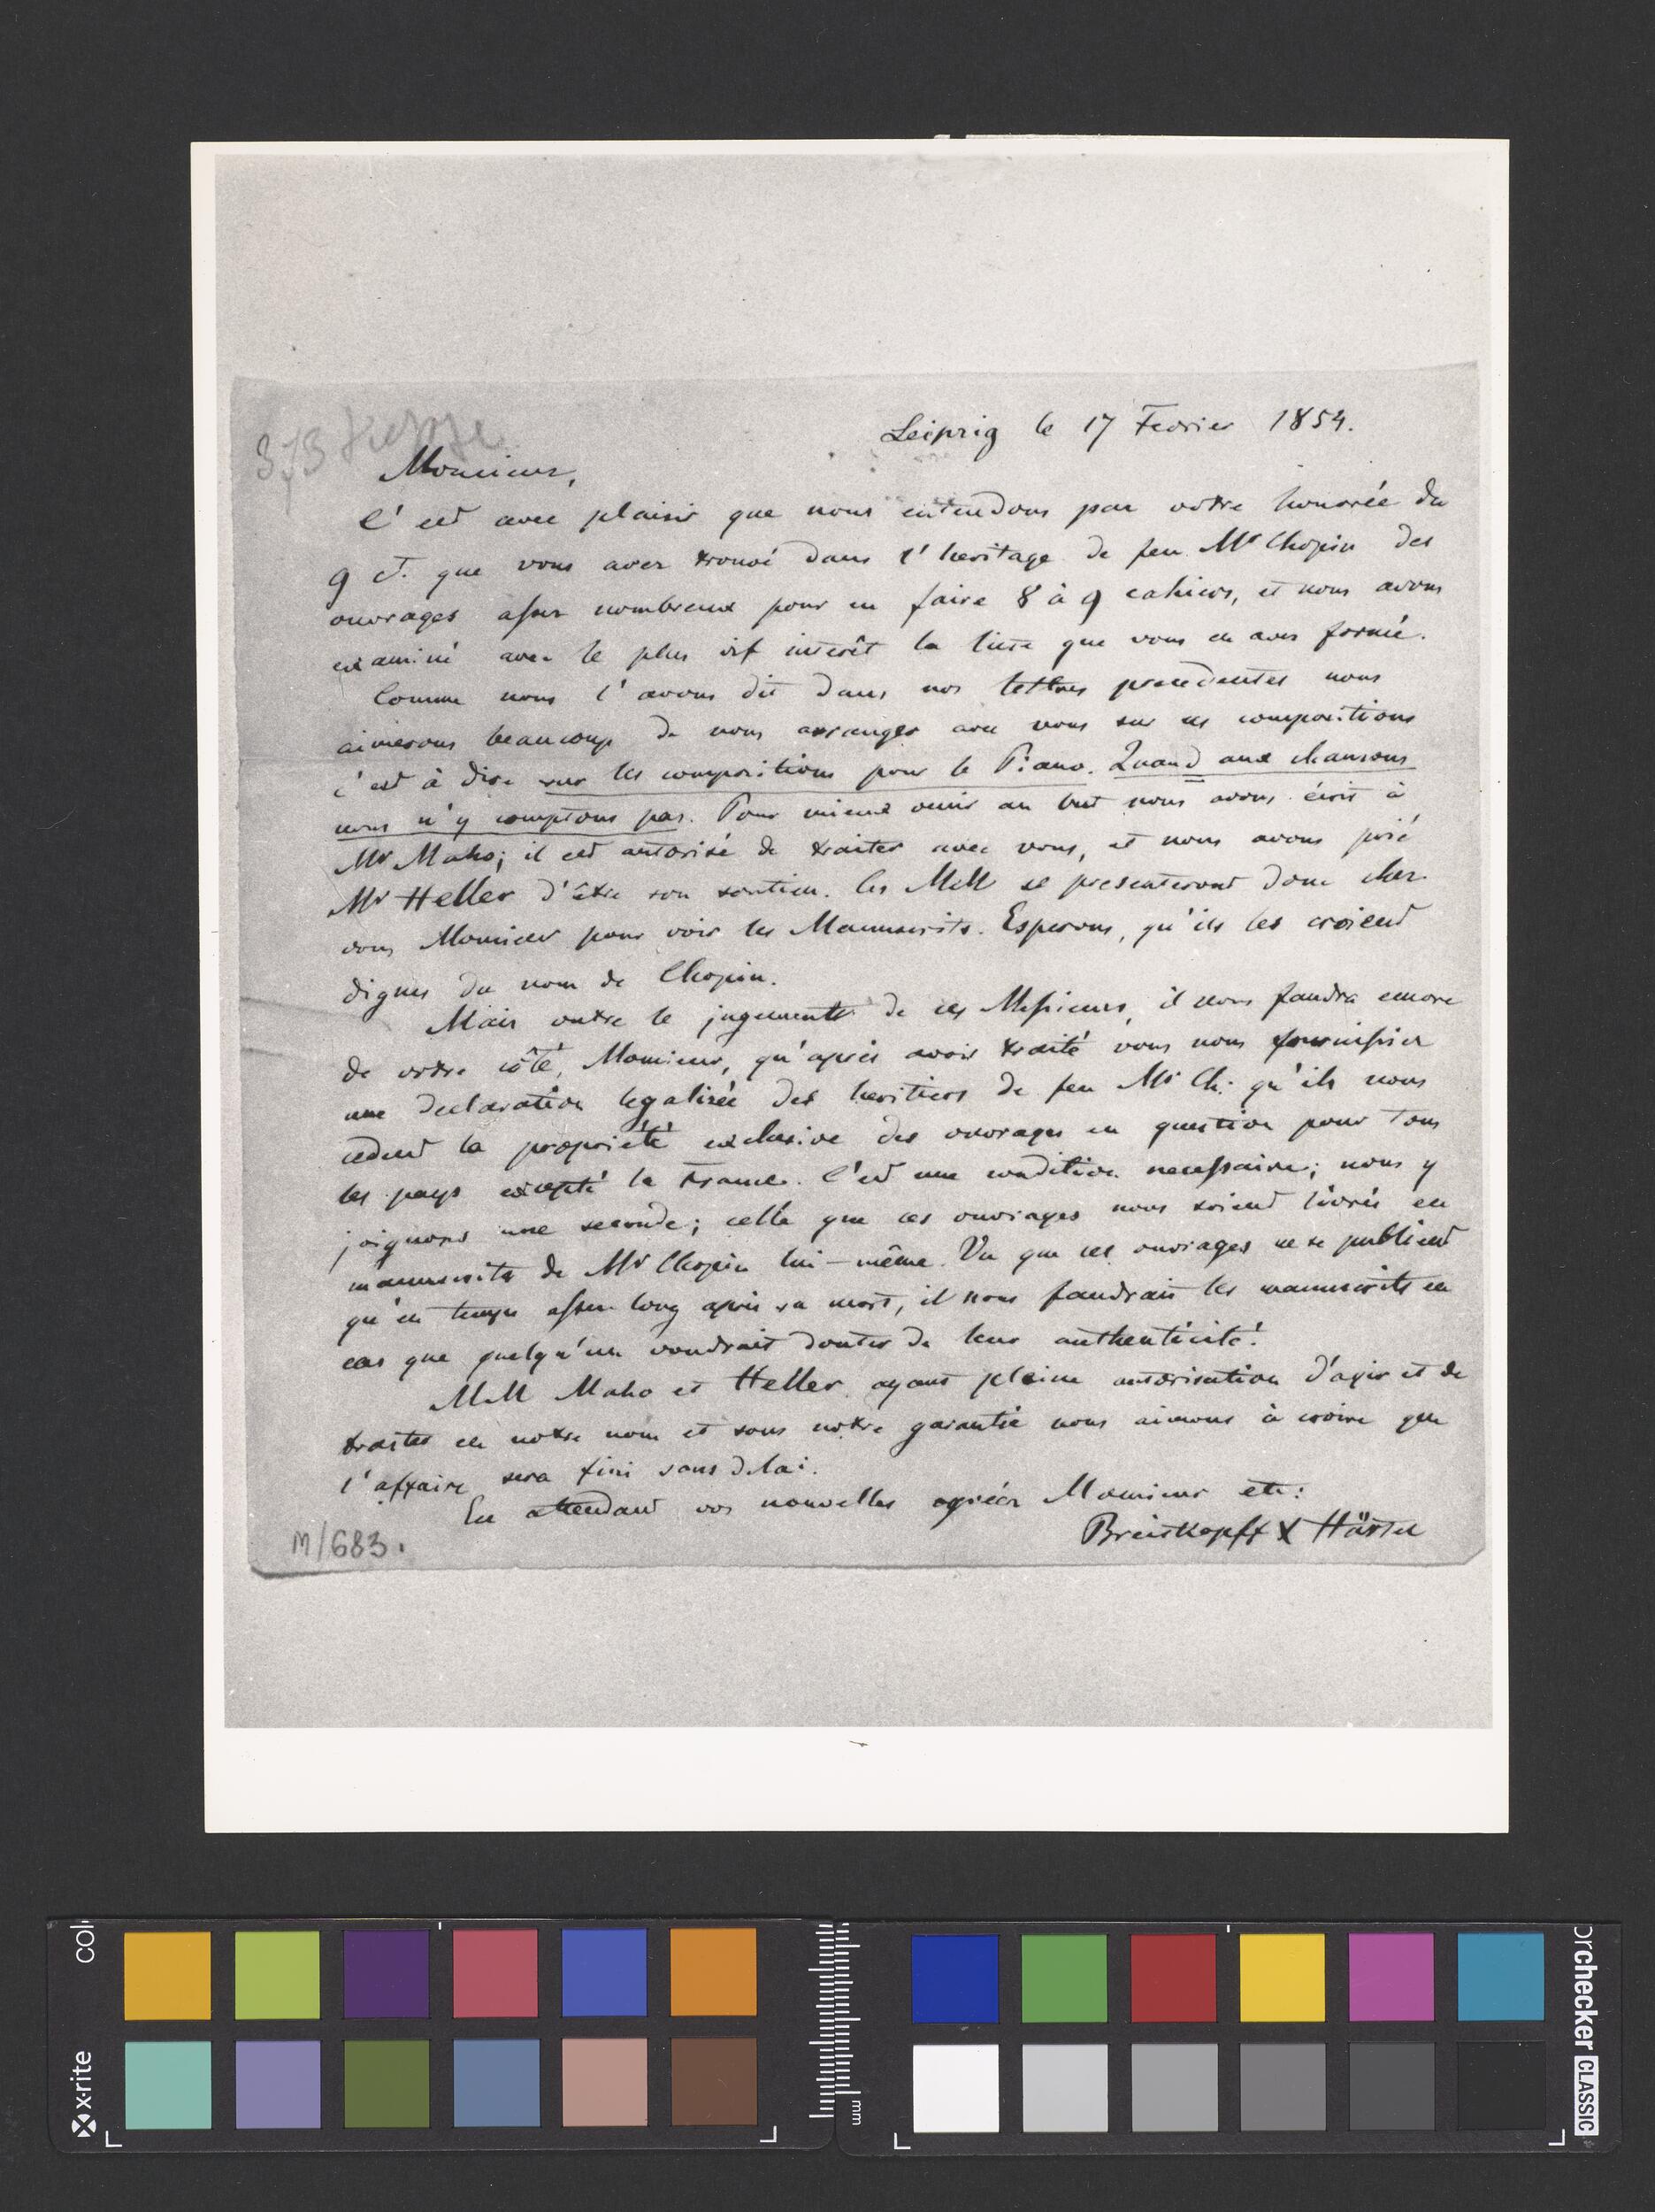 Leipzig le 17 Fevrier 1854.
Monsieur,
C'est avec plaisir que nous entendons par votre honorée du
9 ct. que vous avez trouvé dans l'heritage de feu Mr Chopin des
ouvrages assez nombreux pour en faire 8 à 9 cahiers, et nous avons
examiné avec le plus vif interêt la liste que vous en avez formée.
Comme nous l'avons dit dans nos lettres precedentes nous
aimerons beaucoup de nous arranger avec vous sur ces compositions
c'est à dire sur les compositions pour le Piano. Quand aux chansons
nous n'y comptons pas. Pour mieux venir au but nous avons écrit à
Mr Maho; il est autorisé de traiter avec vous, et nous avons prié
Mr Heller d'être son soutien. Ces MM se presenteront donc chez
vous Monsieur pour voir les Manuscrits. Esperons, qu'ils les croient
dignes du nom de Chopin.
Mais outre le jugement de ces Messieurs, il nous faudra encore
de votre côté, Monsieur, qu'après avoir traité vous nous fournissiez
une declaration legalisée des heritiers de feu Mr Ch: qu'ils nous
cedent la proprieté exclusive des ouvrages en question pour tous
les pays excepté la France. C'est une condition necessaire; nous y
joignons une seconde; celle que ces ouvrages nous soient livrés en
manuscrits de Mr Chopin lui-même. Vu que ces ouvrages ne se publient
qu'en temps assez long après sa mort, il nous faudrait les manuscrits en
cas que quelqu'un voudrait douter de leur authenticité.
MM Maho et Heller ayant pleine autorisation d'agir et de
traiter en notre nom et sous notre garantie nous aimons à croire que
l'affaire sera fini sans delai.
En attendant vos nouvelles agréez Monsieur etc:
Breitkopff & Härtel
M/683.
x·rite
mm
checker CLASSIC